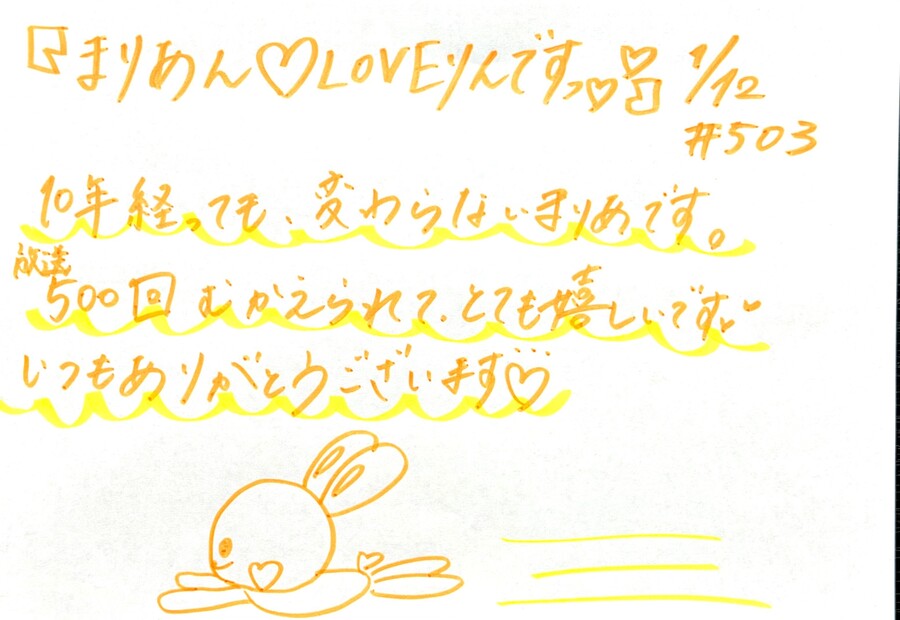 『まりあん♡LOVEりんですっ♡♡』 1/12
#503
10年経っても、変わらないまりめです。
放送
500回むかえられて、とても嬉しいです♥♥
いつもありがとうございます♡